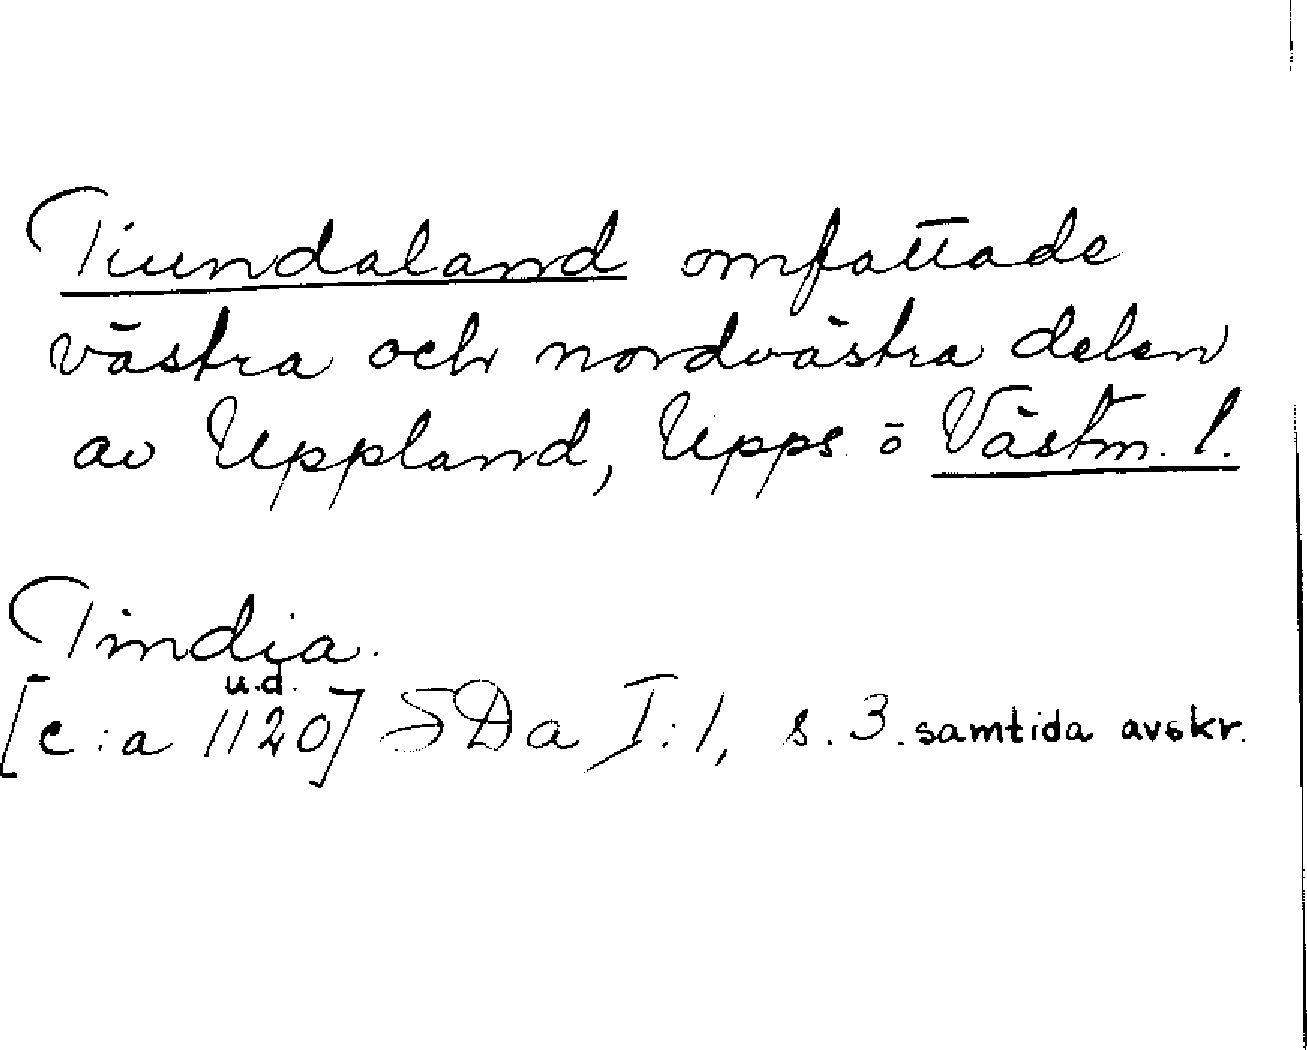 Tiundaland omfattade
västra och nordvästra delen
av Uppland, Upps. o Västm. l.
Tindia.
u.d.
[c:a 1120] SDa I:1, s. 3. samtida avskr.